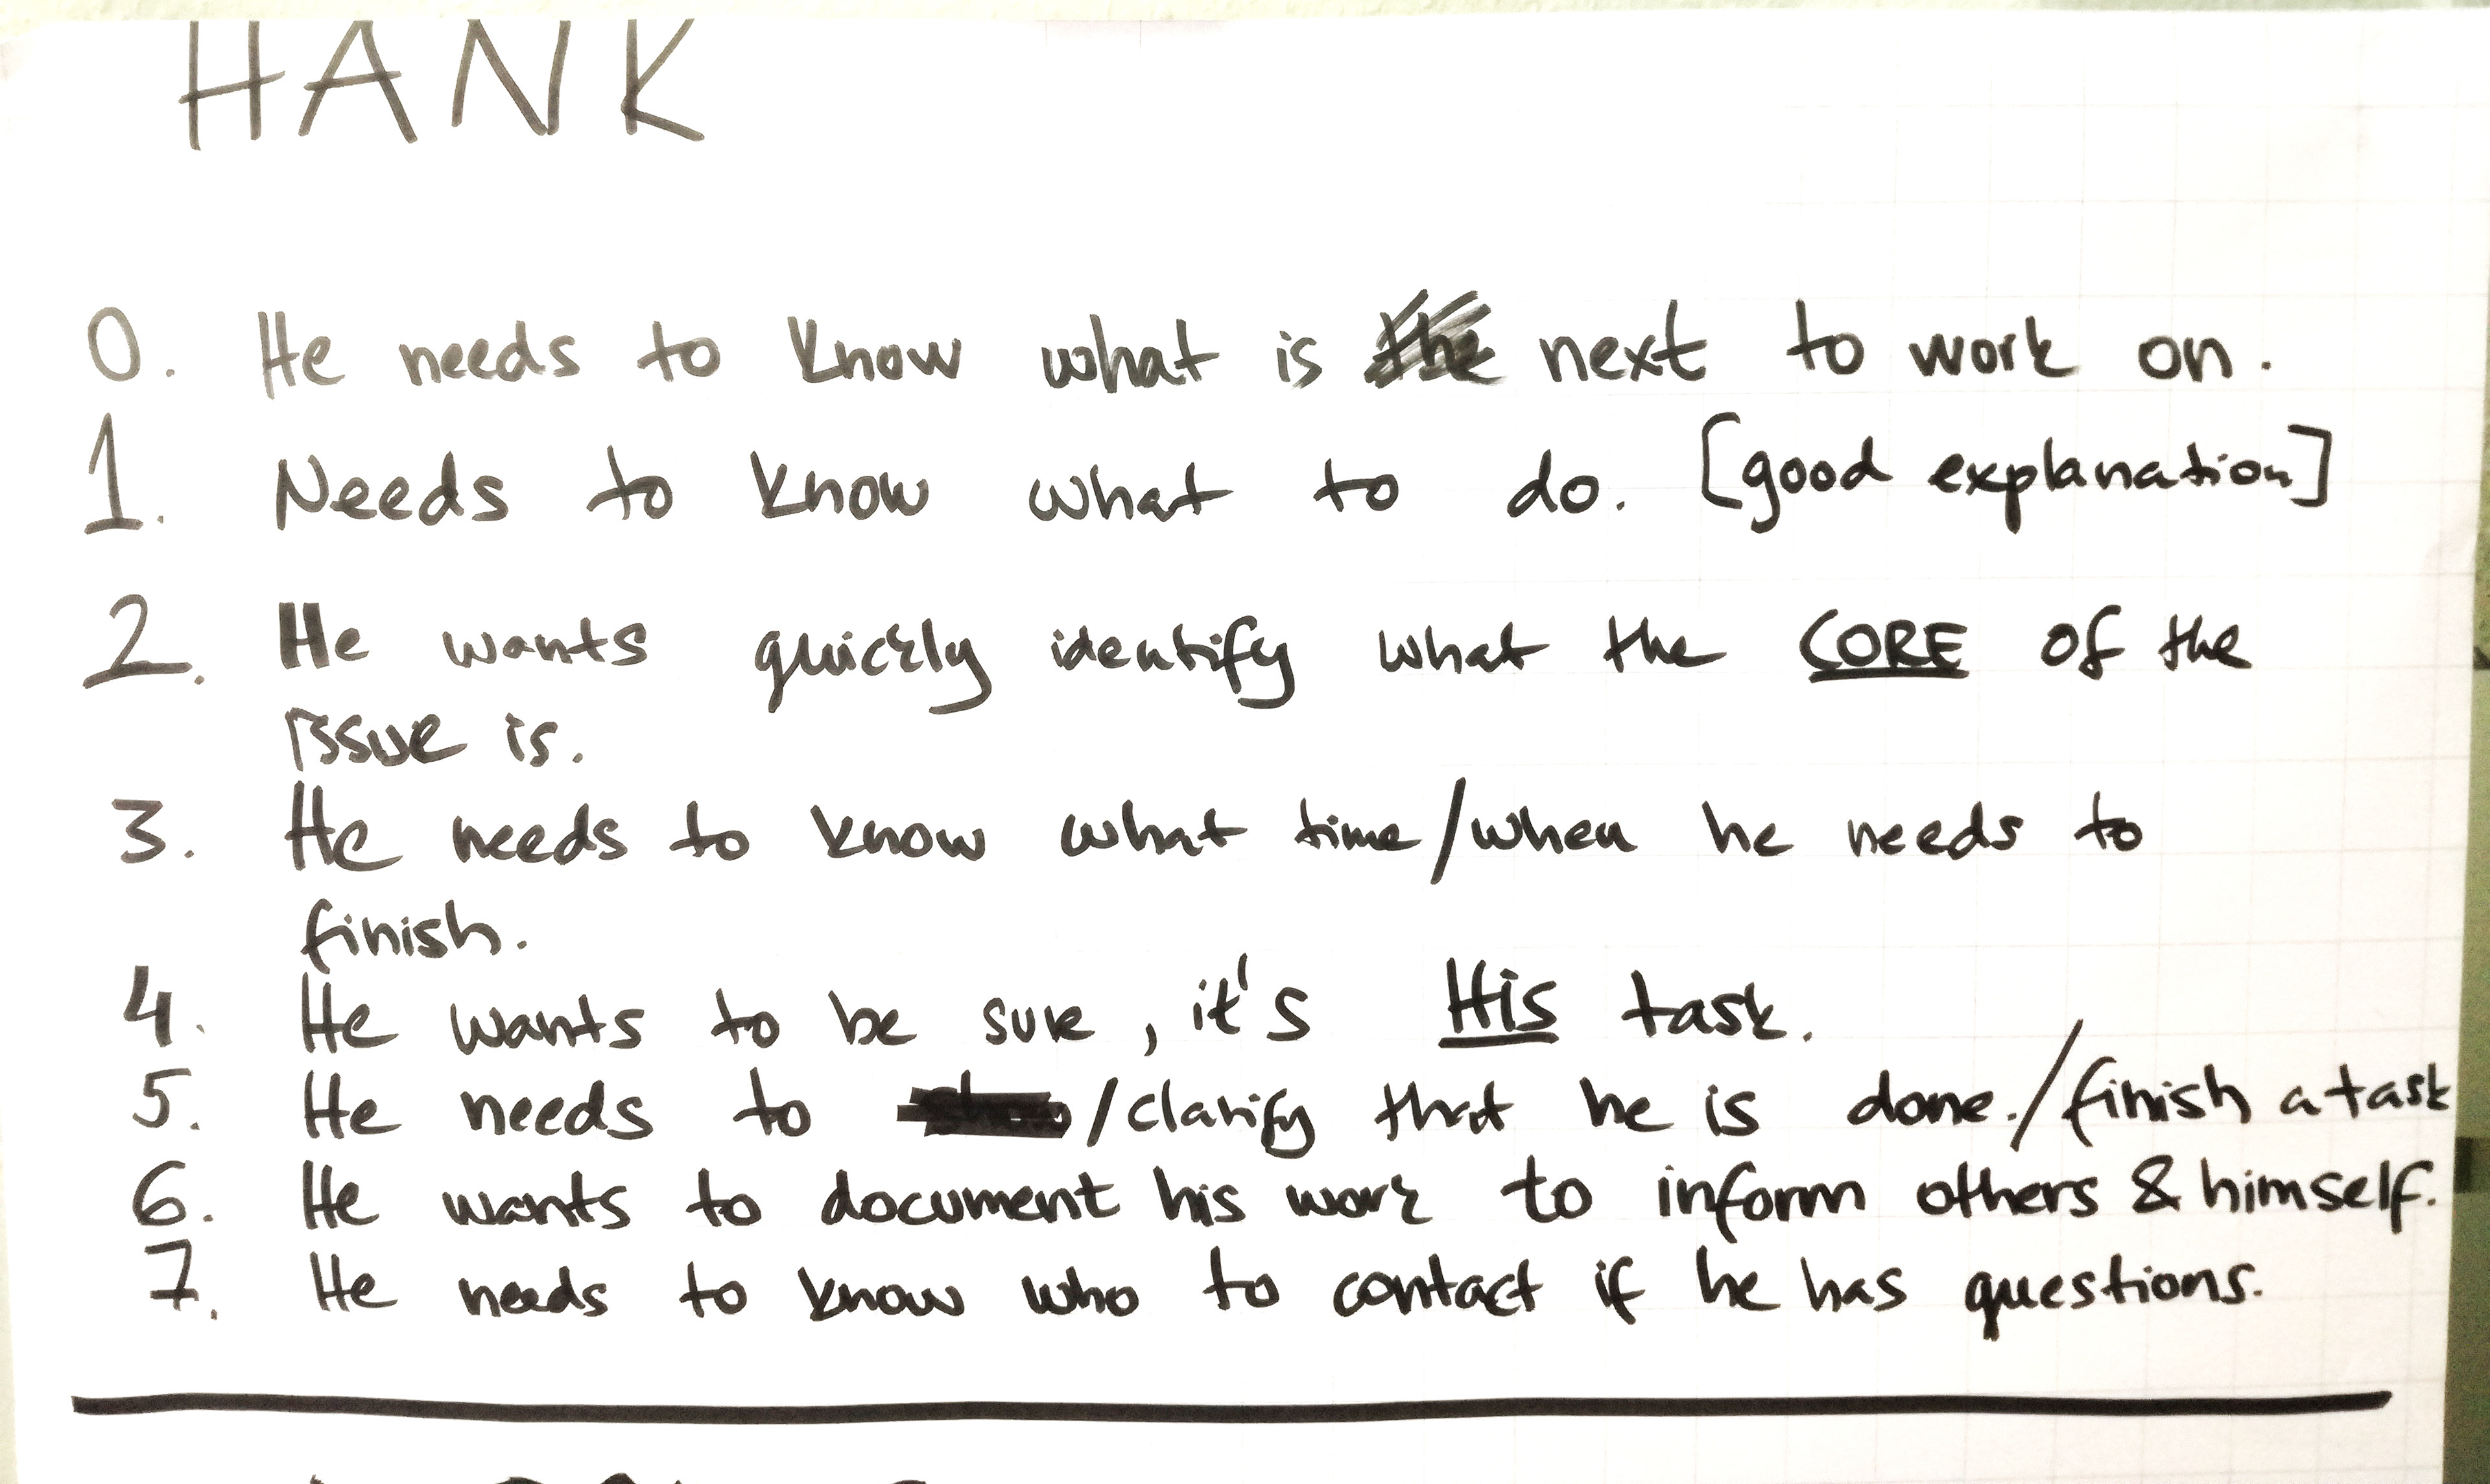 HANK
0. He needs to know what is the next to work on.
1. Needs to know what to do. [good explanation]
2. He wants quickly identify what the CORE of the
issue is.
3. He needs to know what time/when he needs to
finish.
4. He wants to be sure, it's His task.
5. He needs to /clarify that he is done./finish a task
6. He wants to document his work to inform others & himself.
7. He needs to know who to contact if he has questions.